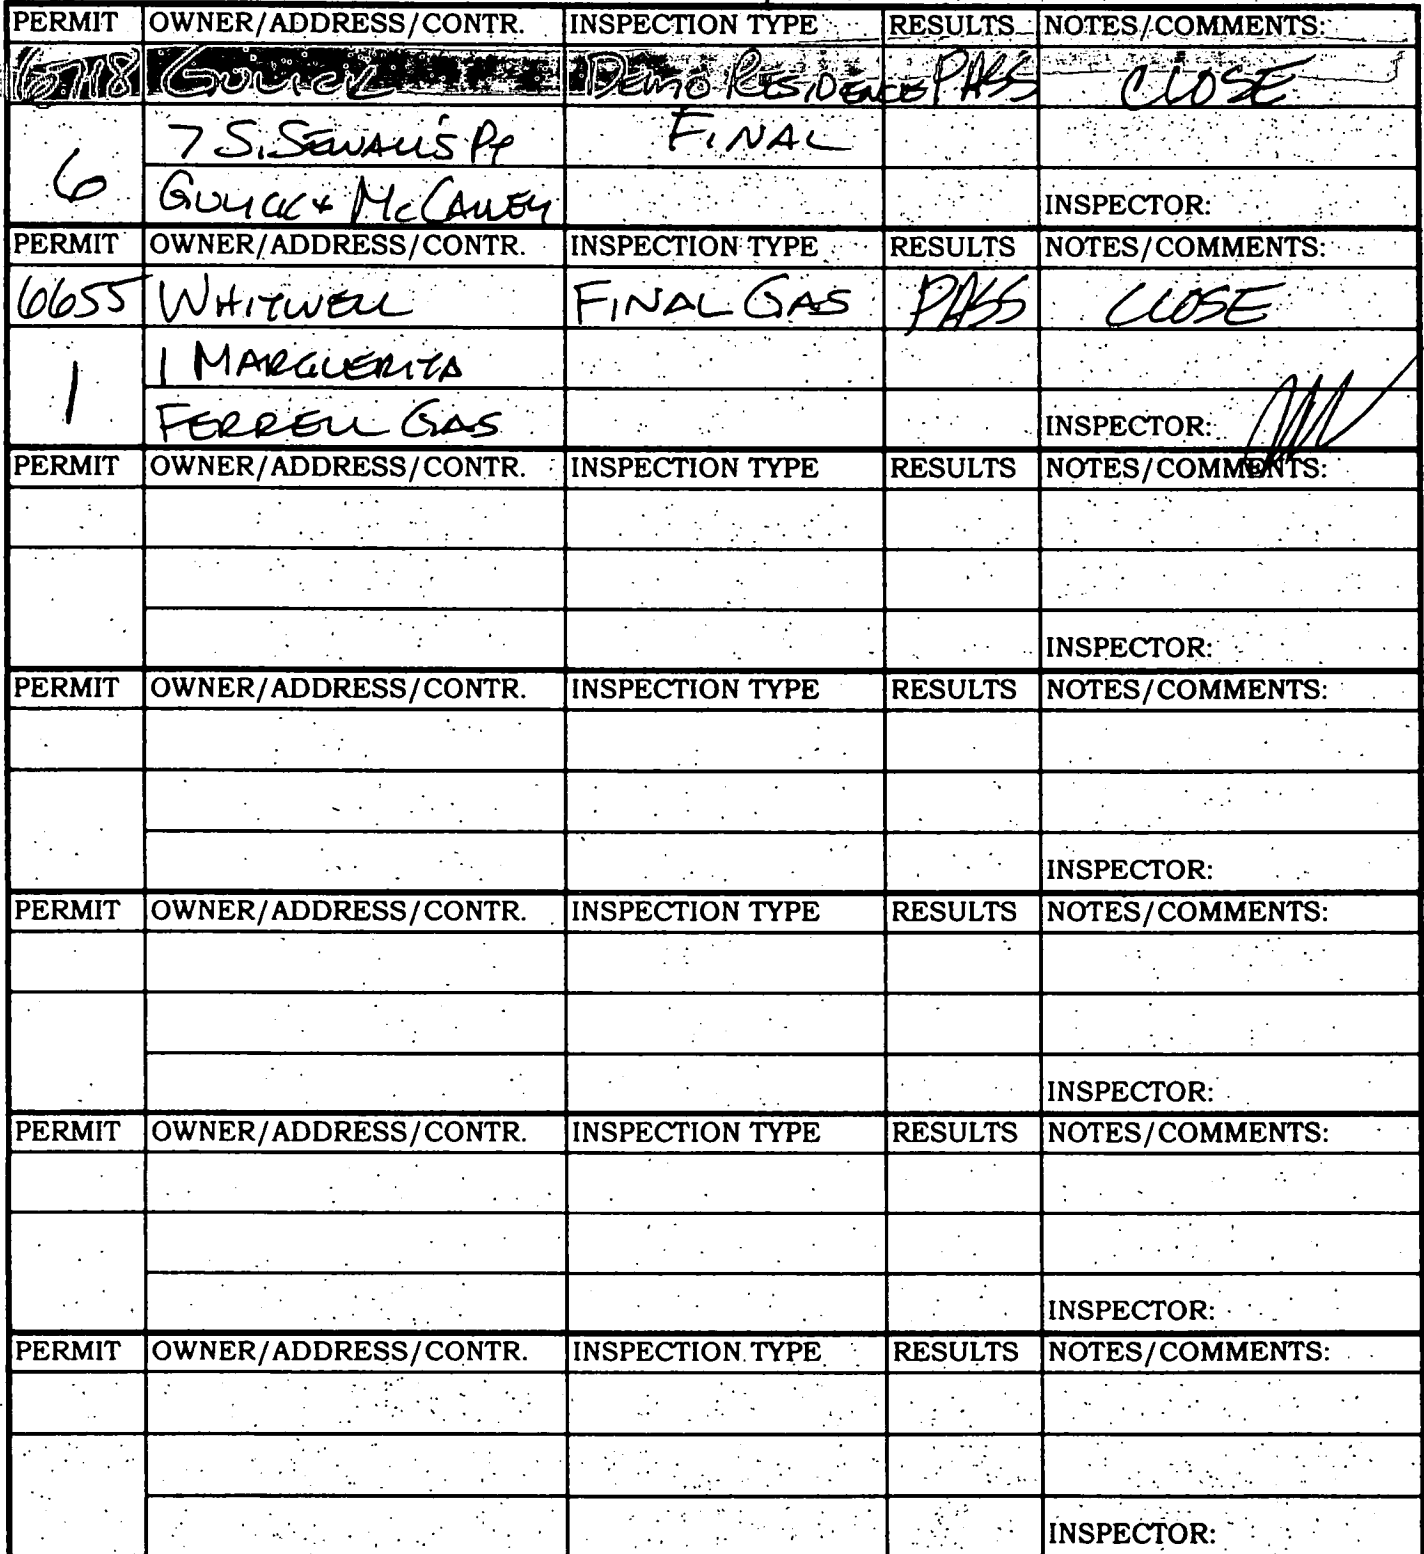 PERMIT OWNER/ADDRESS/CONTR. INSPECTION TYPE RESULTS NOTES/COMMENTS:
6718 GULICK DEMO RESIDENCE PASS CLOSE
7 S. SEWALL'S PT FINAL
6
GULICK & McCAULEY INSPECTOR:
PERMIT OWNER/ADDRESS/CONTR. INSPECTION TYPE RESULTS NOTES/COMMENTS:
6655 WHITWELL FINAL GAS PASS CLOSE
1 MARGUERITA
1
FERRELL GAS INSPECTOR:
PERMIT OWNER/ADDRESS/CONTR. INSPECTION TYPE RESULTS NOTES/COMMENTS:
INSPECTOR:
PERMIT OWNER/ADDRESS/CONTR. INSPECTION TYPE RESULTS NOTES/COMMENTS:
INSPECTOR:
PERMIT OWNER/ADDRESS/CONTR. INSPECTION TYPE RESULTS NOTES/COMMENTS:
INSPECTOR:
PERMIT OWNER/ADDRESS/CONTR. INSPECTION TYPE RESULTS NOTES/COMMENTS:
INSPECTOR:
PERMIT OWNER/ADDRESS/CONTR. INSPECTION TYPE RESULTS NOTES/COMMENTS:
INSPECTOR: